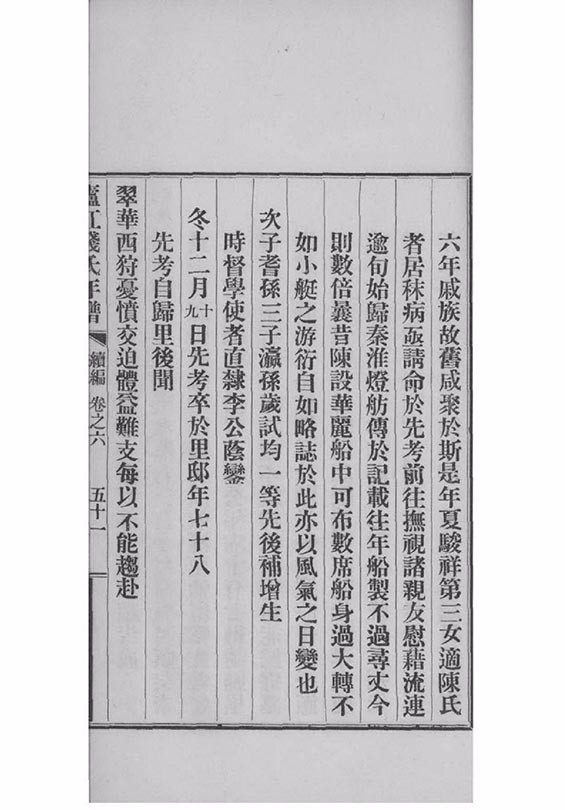 六年戚族故舊咸聚於斯是年夏駿祥第三女適陳氏
者居秣病亟請命於先考前往撫視諸親友慰藉流連
逾旬始歸秦淮燈舫傳於記載往年船製不過尋丈今
則數倍曩昔陳設華麗船中可布數席船身過大轉不
如小艇之游衍自如略誌於此亦以風氣之日變也
次子耆孫三子瀛孫歲試均一等先後補增生
時督學使者直隸李公蔭鑾
冬十二月十九日先考卒於里邸年七十八
先考自歸里後聞
翠華西狩憂憤交迫體益難支每以不能趨赴
廬江錢氏年譜 續編 卷之六 五十一